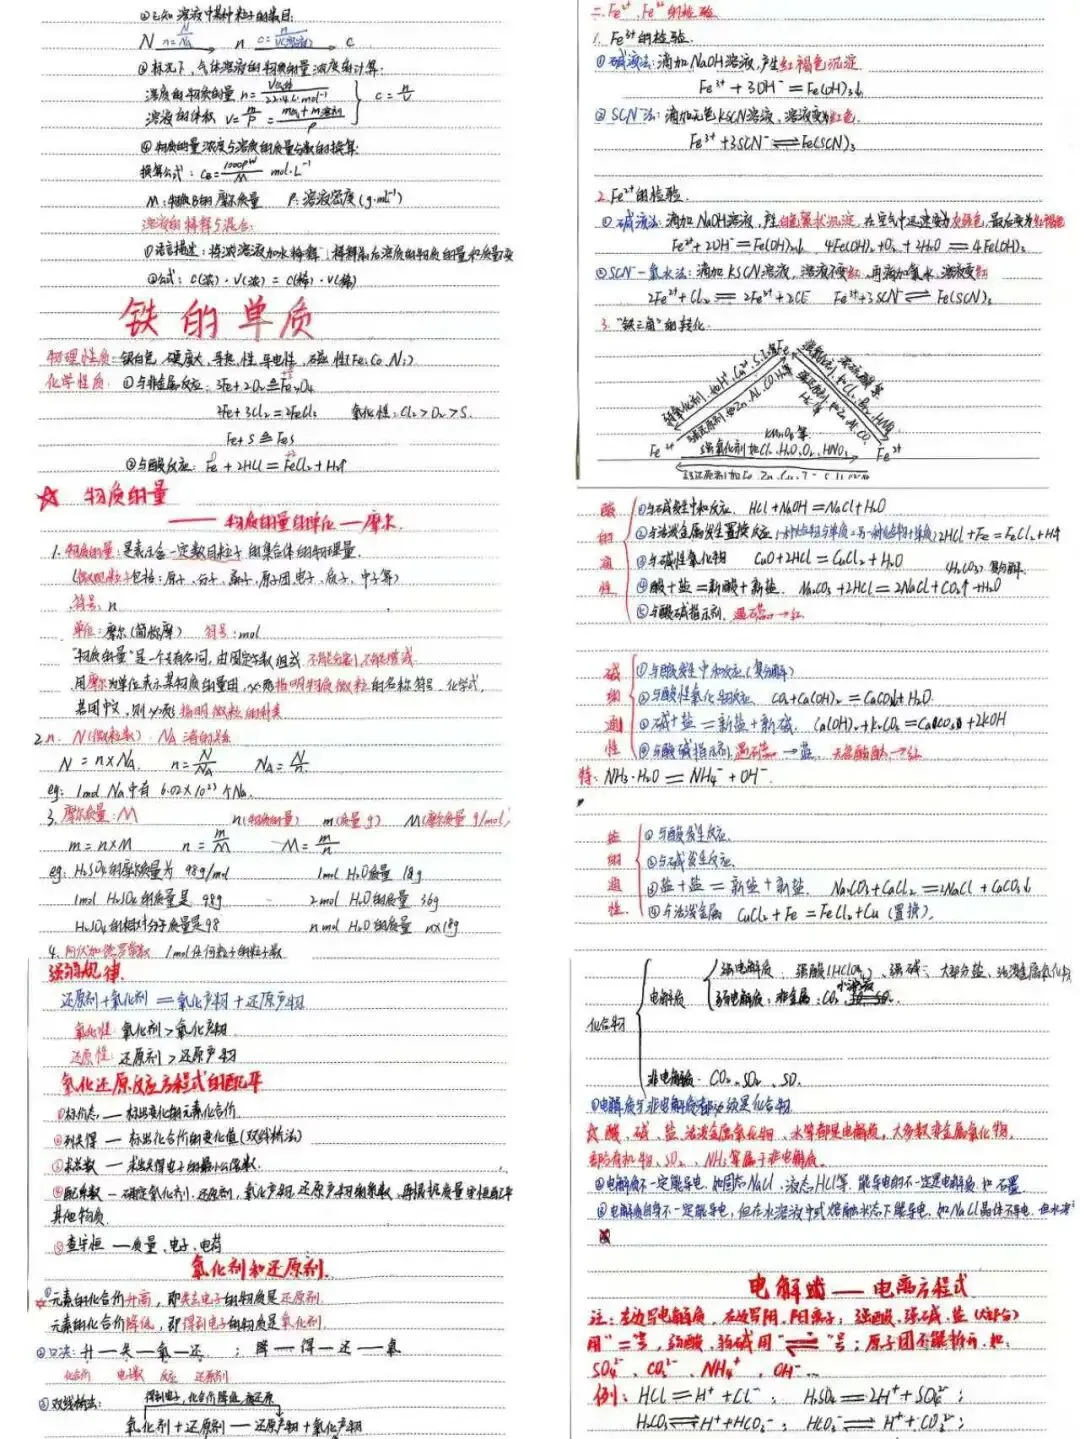 ②已知溶液中某种粒子的数目:
N n=N/NA n c=n/V(溶液) c
③标况下,气体溶液的物质的量浓度的计算:
溶质的物质的量 n=V气体/22.4L·mol⁻¹
溶液的体积 V=m/ρ=m气体+m溶剂/ρ } c=n/V
④物质的量浓度与溶质的质量分数的换算
换算公式: CB=1000ρw/M mol·L⁻¹
M:物质B的摩尔质量 ρ:溶液密度(g·mL⁻¹)
溶液的稀释与混合:
①语言描述:将浓溶液加水稀释,稀释前后溶质的物质的量和质量不变
②公式: C(浓)·V(浓)=C(稀)·V(稀)
铁的单质
物理性质:银白色,硬度大,导热性,导电性,磁性(Fe,Co,Ni)
化学性质:①与非金属反应: 3Fe+2O₂=Fe₃O₄
2Fe+3Cl₂=2FeCl₃ 氧化性:Cl₂>O₂>S
Fe+S≜FeS
②与酸反应: Fe+2HCl=FeCl₂+H₂↑
☆ 物质的量
——物质的量的单位—摩尔
1.物质的量:是表示含一定数目粒子的集合体的物理量
(微观粒子包括:原子、分子、离子、原子团、电子、质子、中子等)
符号:n
单位:摩尔(简称摩) 符号:mol
“物质的量”是一个专有名词,由固定字数组成,不能分割,不能增减
用摩尔为单位表示某物质的量时,必须指明物质微粒的名称、符号、化学式,
若用中文,则必须指明微粒的种类
2.n、N(微粒数)、NA之间的关系
N=n×NA n=N/NA NA=N/n
eg: 1mol Na中有6.02×10²³个Na
3.摩尔质量:M n(物质的量) m(质量g) M(摩尔质量g/mol)
m=n×M n=m/M M=m/n
eg: H₂SO₄的摩尔质量为98g/mol 1mol H₂O质量18g
1mol H₂SO₄的质量是98g 2mol H₂O的质量36g
H₂SO₄的相对分子质量是98 n mol H₂O的质量 n×18g
4.阿伏加德罗常数 1mol任何粒子的粒子数
强弱规律
还原剂+氧化剂=氧化产物+还原产物
氧化性:氧化剂>氧化产物
还原性:还原剂>还原产物
氧化还原反应方程式的配平
①标价态—标出变化的元素化合价
②列失得—标出化合价的变化值(双线桥法)
③求总数—求出失得电子的最小公倍数
④配系数—确定氧化剂、还原剂、氧化产物、还原产物的系数,再根据质量守恒配平
其他物质
⑤查守恒—质量、电子、电荷
氧化剂和还原剂
☆①元素的化合价升高,即失去电子的物质是还原剂
元素的化合价降低,即得到电子的物质是氧化剂
②口诀:升—失—氧—还; 降—得—还—氧
化合价 电子数 反应 还原剂
③双线桥法: 得到电子,化合价降低,被还原
氧化剂+还原剂—还原产物+氧化产物
二.Fe²⁺、Fe³⁺的检验
1.Fe³⁺的检验
①碱液法:滴加NaOH溶液,产生红褐色沉淀
Fe³⁺+3OH⁻=Fe(OH)₃↓
②SCN⁻法:滴加无色KSCN溶液,溶液变为红色
Fe³⁺+3SCN⁻⇌Fe(SCN)₃
2.Fe²⁺的检验
①碱液法:滴加NaOH溶液,产生白色絮状沉淀,在空气中迅速变为灰绿色,最后变为红褐色
Fe²⁺+2OH⁻=Fe(OH)₂↓ 4Fe(OH)₂+O₂+2H₂O=4Fe(OH)₃
②SCN⁻-氯水法:滴加KSCN溶液,溶液不变红,再滴加氯水,溶液变红
2Fe²⁺+Cl₂=2Fe³⁺+2Cl⁻ Fe³⁺+3SCN⁻⇌Fe(SCN)₃
3.“铁三角”的转化
弱氧化剂,如H⁺,Cu²⁺,S,I₂等 Fe
Fe²⁺ 强氧化剂如Cl₂,H₂O₂,O₂,HNO₃ KMnO₄等 Fe³⁺
酸的通性
①与碱发生中和反应 HCl+NaOH=NaCl+H₂O
②与活泼金属发生置换反应 2HCl+Fe=FeCl₂+H₂↑
③与碱性氧化物 CuO+2HCl=CuCl₂+H₂O
④酸+盐=新酸+新盐 Na₂CO₃+2HCl=2NaCl+CO₂↑+H₂O
⑤与酸碱指示剂 遇石蕊→红
碱的通性
①与酸发生中和反应(复分解)
②与酸性氧化物反应 CO₂+Ca(OH)₂=CaCO₃↓+H₂O
③碱+盐=新盐+新碱 Ca(OH)₂+K₂CO₃=CaCO₃↓+2KOH
④与酸碱指示剂 遇石蕊→蓝 无色酚酞→红
特:NH₃·H₂O=NH₄⁺+OH⁻
盐的通性
①与酸发生反应
②与碱发生反应
③盐+盐=新盐+新盐 Na₂CO₃+CaCl₂=2NaCl+CaCO₃↓
④与活泼金属 CuCl₂+Fe=FeCl₂+Cu(置换)
化合物
电解质
强电解质:强酸(HClO₄)、强碱、大部分盐、活泼金属氧化物
弱电解质:非金属:CO₂
非电解质:CO₂、SO₂、SO₃
①电解质与非电解质都必须是化合物
☆ 酸、碱、盐、活泼金属氧化物、水等都是电解质,大多数非金属氧化物,
部分有机物、SO₂、NH₃等属于非电解质。
②电解质不一定能导电,如固态NaCl、液态HCl等,能导电的不一定是电解质,如石墨
③电解质自身不一定能导电,但在水溶液中或熔融状态下能导电,如NaCl晶体不导电,但水溶
电解域——电离方程式
注:左边写电解质,右边写阴、阳离子;强酸、强碱、盐(大部分)
用“=”号,弱酸、弱碱用“⇌”号;原子团不能拆开,如:
SO₄²⁻、CO₃²⁻、NH₄⁺、OH⁻
例:HCl=H⁺+Cl⁻; H₂SO₄=2H⁺+SO₄²⁻;
H₂CO₃⇌H⁺+HCO₃⁻; HCO₃⁻⇌H⁺+CO₃²⁻;